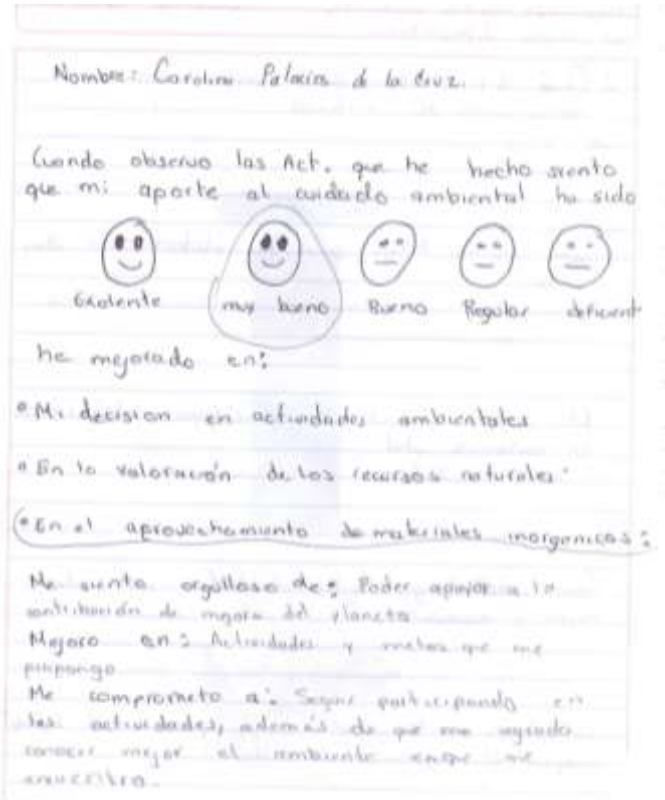 Nombre: Carolina Palacios de la Cruz.
Cuando observo las Act. que he hecho siento
que mi aporte al cuidado ambiental ha sido
Exelente muy bueno Bueno Regular deficient
he mejorado en:
• Mi decision en actividades ambientales
• En la valoración de los recursos naturales.
• En el aprovechamiento de materiales inorganicos:
Me siento orgulloso de: Poder apoyar a la
contribución de mejora del planeta
Mejoro en: Actividades y metas que me
propongo
Me comprometo a: Seguir participando en
las actividades, además de que me ayuda
conocer mejor el ambiente en que me
encuentro.